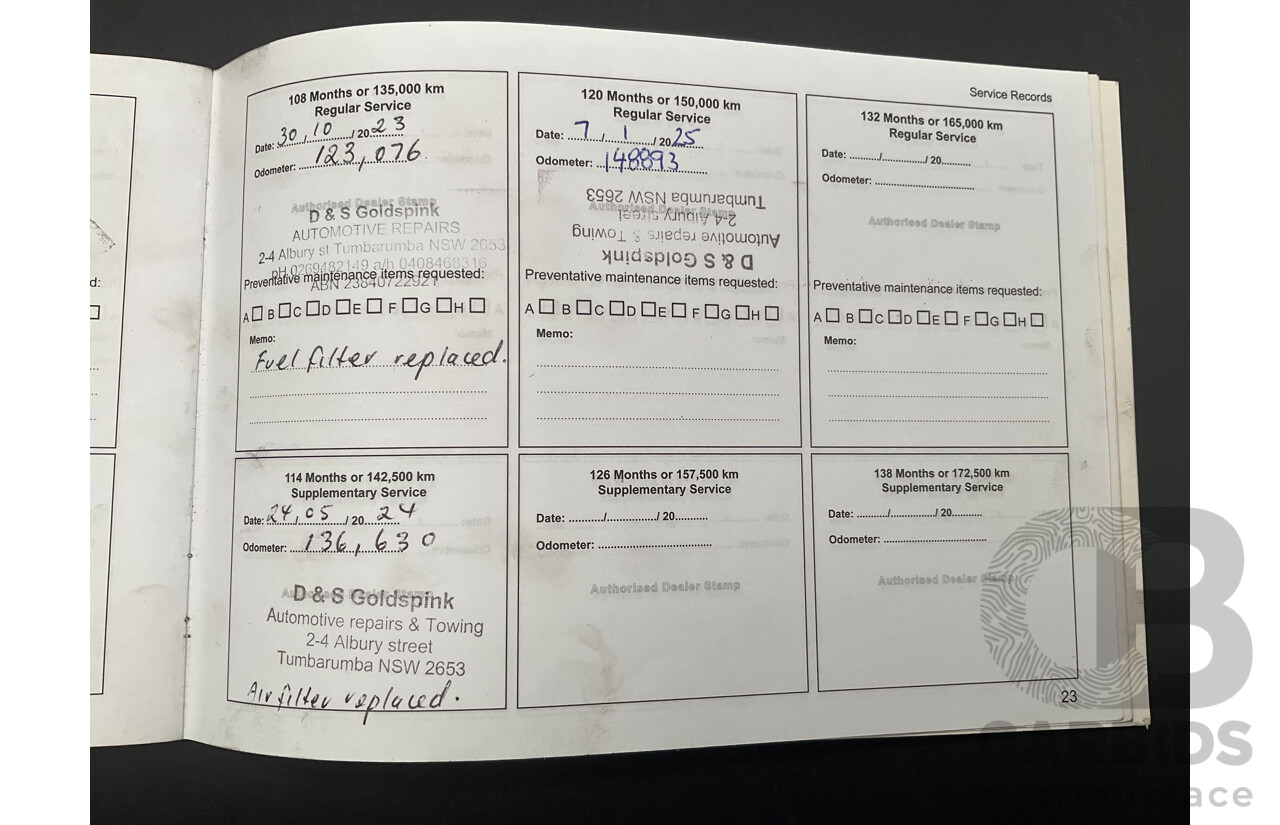 Service Records
108 Months or 135,000 km
Regular Service
Date: 30, 10 / 20 23
Odometer: 123,076
Authorised Dealer Stamp
D & S Goldspink
AUTOMOTIVE REPAIRS
2-4 Albury st Tumbarumba NSW 2653
pH 0269482149 a/h 0408468316
ABN 23840722921
Preventative maintenance items requested:
A B C D E F G H
Memo:
Fuel filter replaced.
120 Months or 150,000 km
Regular Service
Date: 7 / 1 / 20 25
Odometer: 148893
Authorised Dealer Stamp
D & S Goldspink
Automotive repairs & Towing
2-4 Albury street
Tumbarumba NSW 2653
Preventative maintenance items requested:
A B C D E F G H
Memo:
132 Months or 165,000 km
Regular Service
Date: ........../.............../ 20..........
Odometer: ..................................
Authorised Dealer Stamp
Preventative maintenance items requested:
A B C D E F G H
Memo:
114 Months or 142,500 km
Supplementary Service
Date: 24, 05 / 20 24
Odometer: 136,630
Authorised Dealer Stamp
D & S Goldspink
Automotive repairs & Towing
2-4 Albury street
Tumbarumba NSW 2653
Air filter replaced.
126 Months or 157,500 km
Supplementary Service
Date: ........../.............../ 20..........
Odometer: ..................................
Authorised Dealer Stamp
138 Months or 172,500 km
Supplementary Service
Date: ........../.............../ 20..........
Odometer: ..................................
Authorised Dealer Stamp
23
d:
CARBIDS